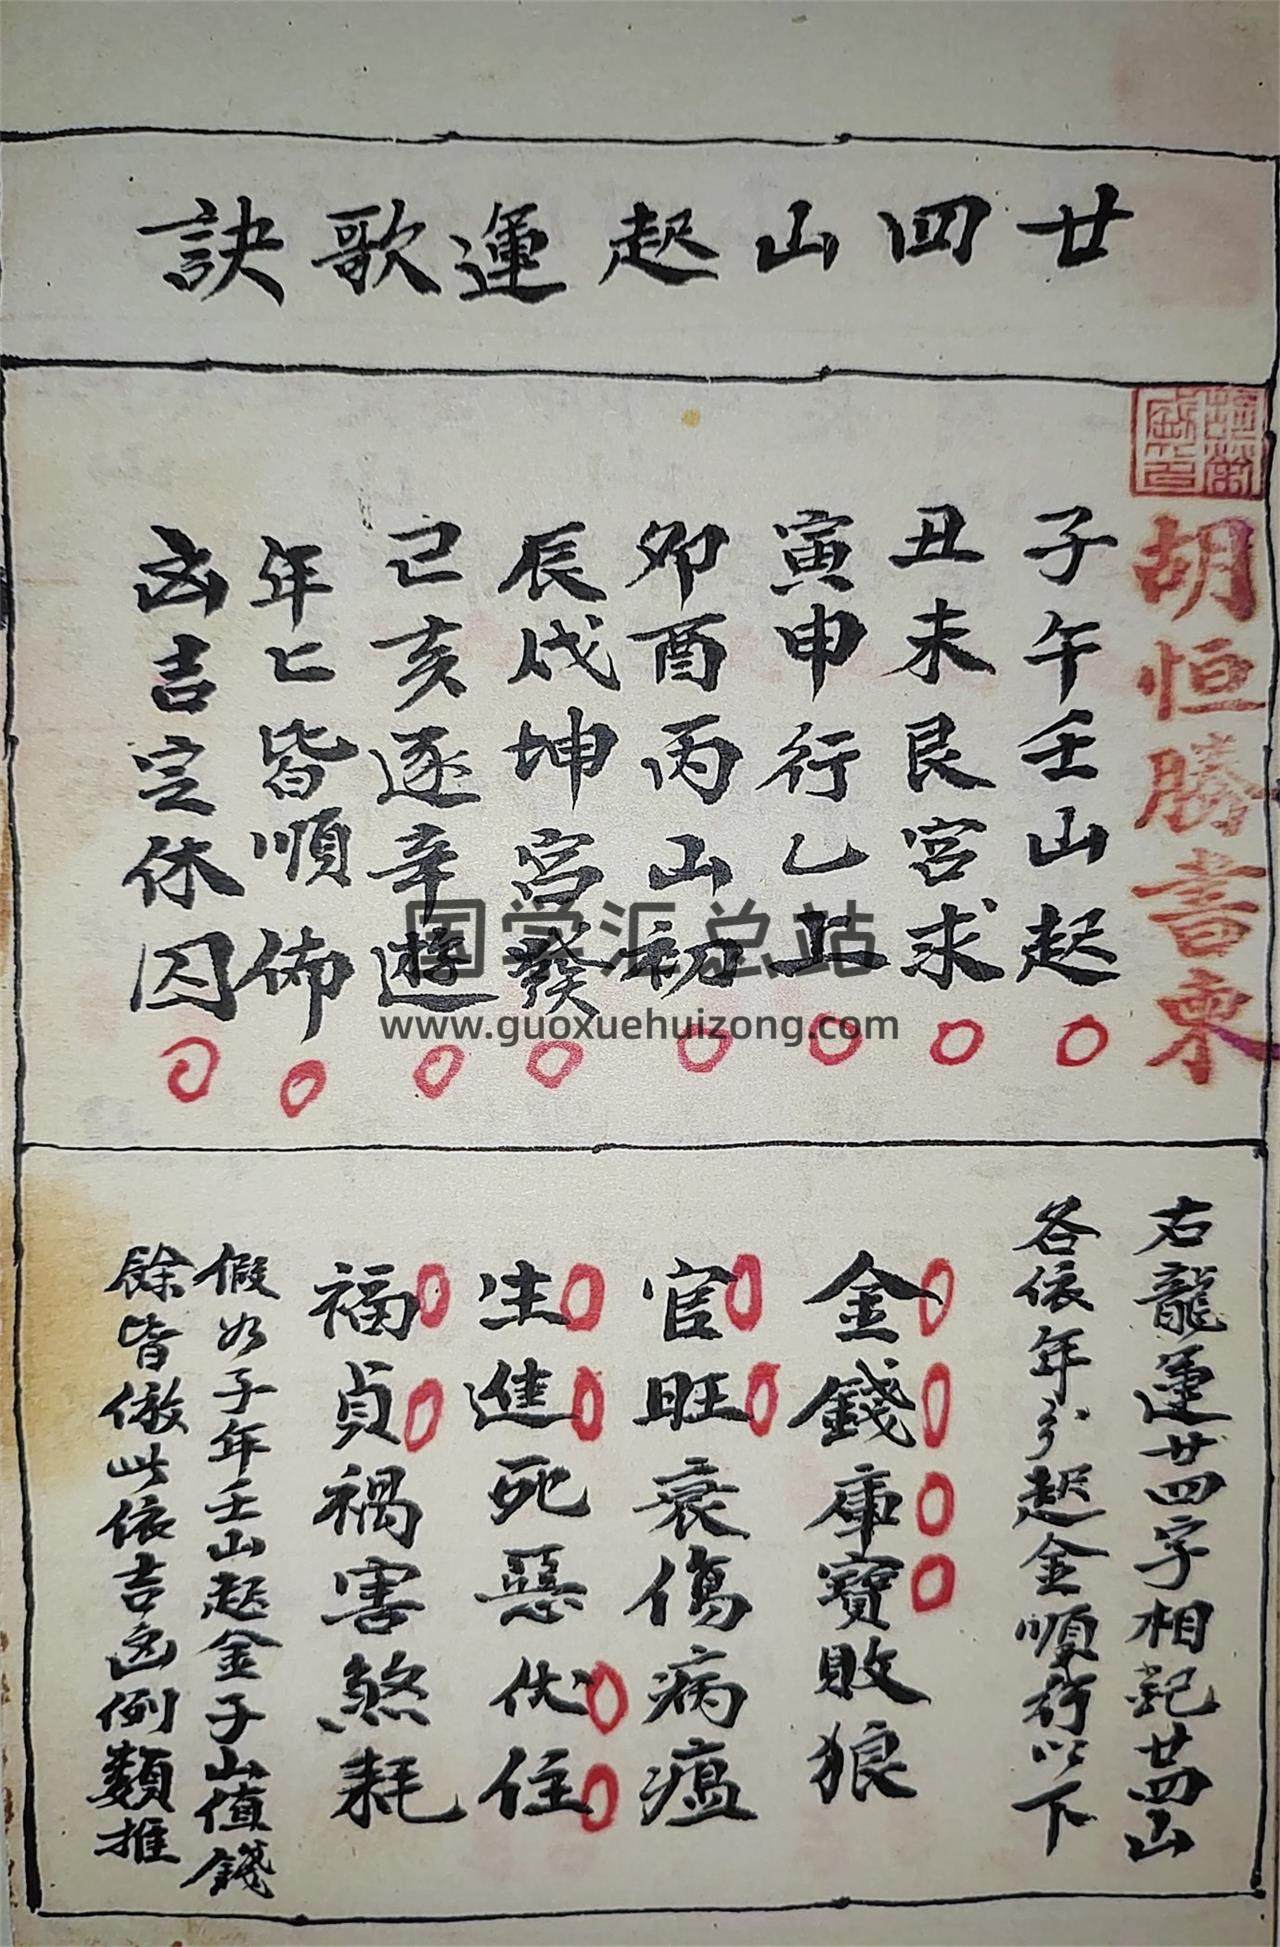 廿四山起運歌訣
胡恒勝書柬
子午壬山起
丑未艮宮求
寅申行乙上
卯酉丙山初
辰戌坤宮發
己亥逐辛遊
年匕皆順佈
凶吉定休囚
国学汇总站
www.guoxuehuizong.com
右龍運廿四字相記廿四山
各依年分起金順行以下
金錢庫寶敗狼
官旺衰傷病瘟
生進死惡伏住
福貞禍害煞耗
假如子年壬山起金子山值錢
餘皆倣此依吉凶例類推